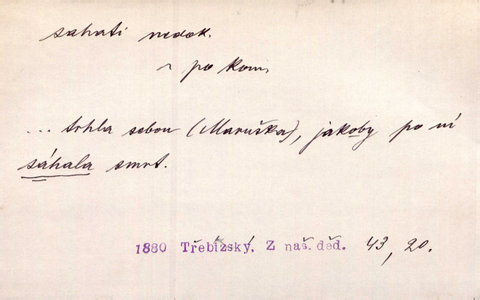 sahati nedok.
~ po kom.
... trhla sebou (Maruška), jakoby po ní
sáhala smrt.
1880 Třebízský, Z naš. děd. 43, 20.